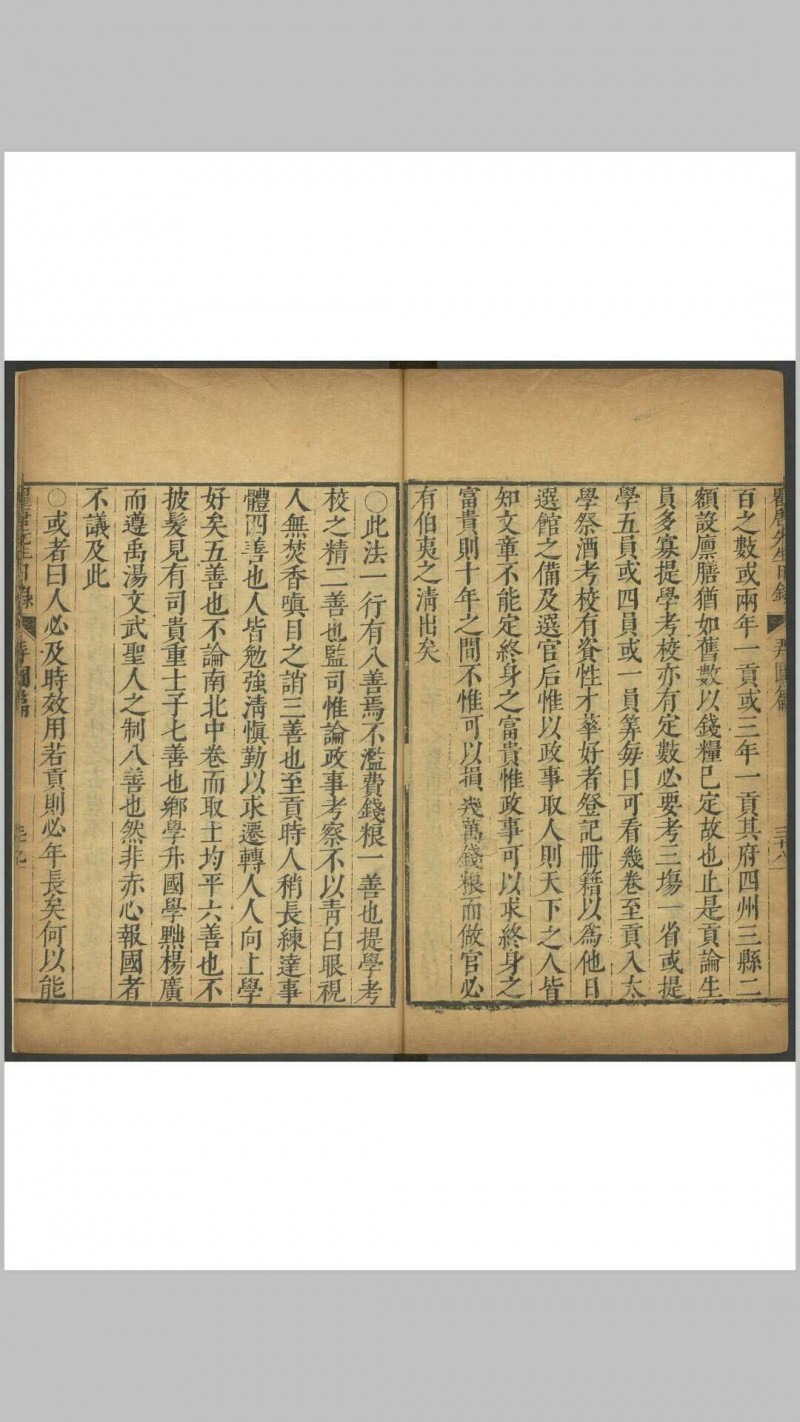 百之數或兩年一貢或三年一貢其府四州三縣二
額設廪膳猶如舊數以錢糧已定故也止是貢論生
員多寡提學考校亦有定數必要考三塲一省或提
學五員或四員或一員筭每日可看幾卷至貢入太
學祭酒考校有資性才華好者登記冊籍以為他日
選館之備及選官后惟以政事取人則天下之人皆
知文章不能定終身之富貴惟政事可以求終身之
富貴則十年之間不惟可以損幾萬錢粮而做官必
有伯夷之清出矣
○此法一行有八善焉不濫費錢粮一善也提學考
校之精二善也監司惟論政事考察不以青白眼視
人無焚香嗔目之誚三善也至貢時人稍長練達事
體四善也人皆勉強清慎勤以求遷轉人人向上學
好矣五善也不論南北中巻而取士均平六善也不
披髮見有司貴重士子七善也鄉學升國學黜楊廣
而遵禹湯文武聖人之制八善也然非赤心報國者
不議及此
○或者曰人必及時效用若貢則必年長矣何以能